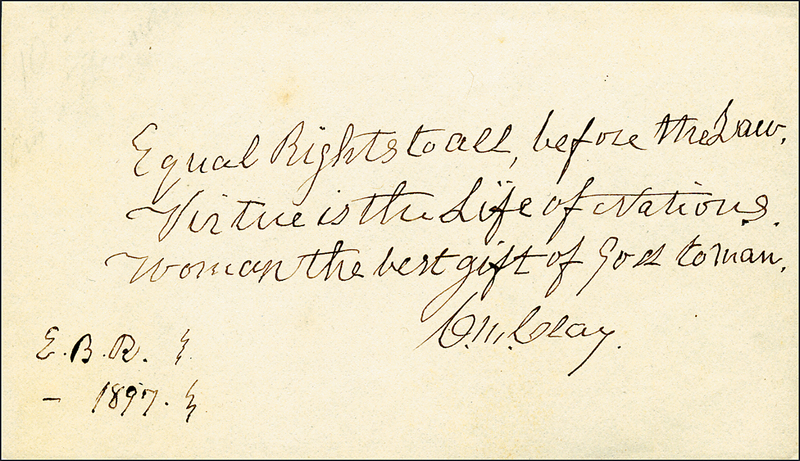 Equal Rights to all, before the Law.
Virtue is the Life of Nations.
Woman the best gift of God to man.
C.M. Clay.
E.B.R.
- 1897.